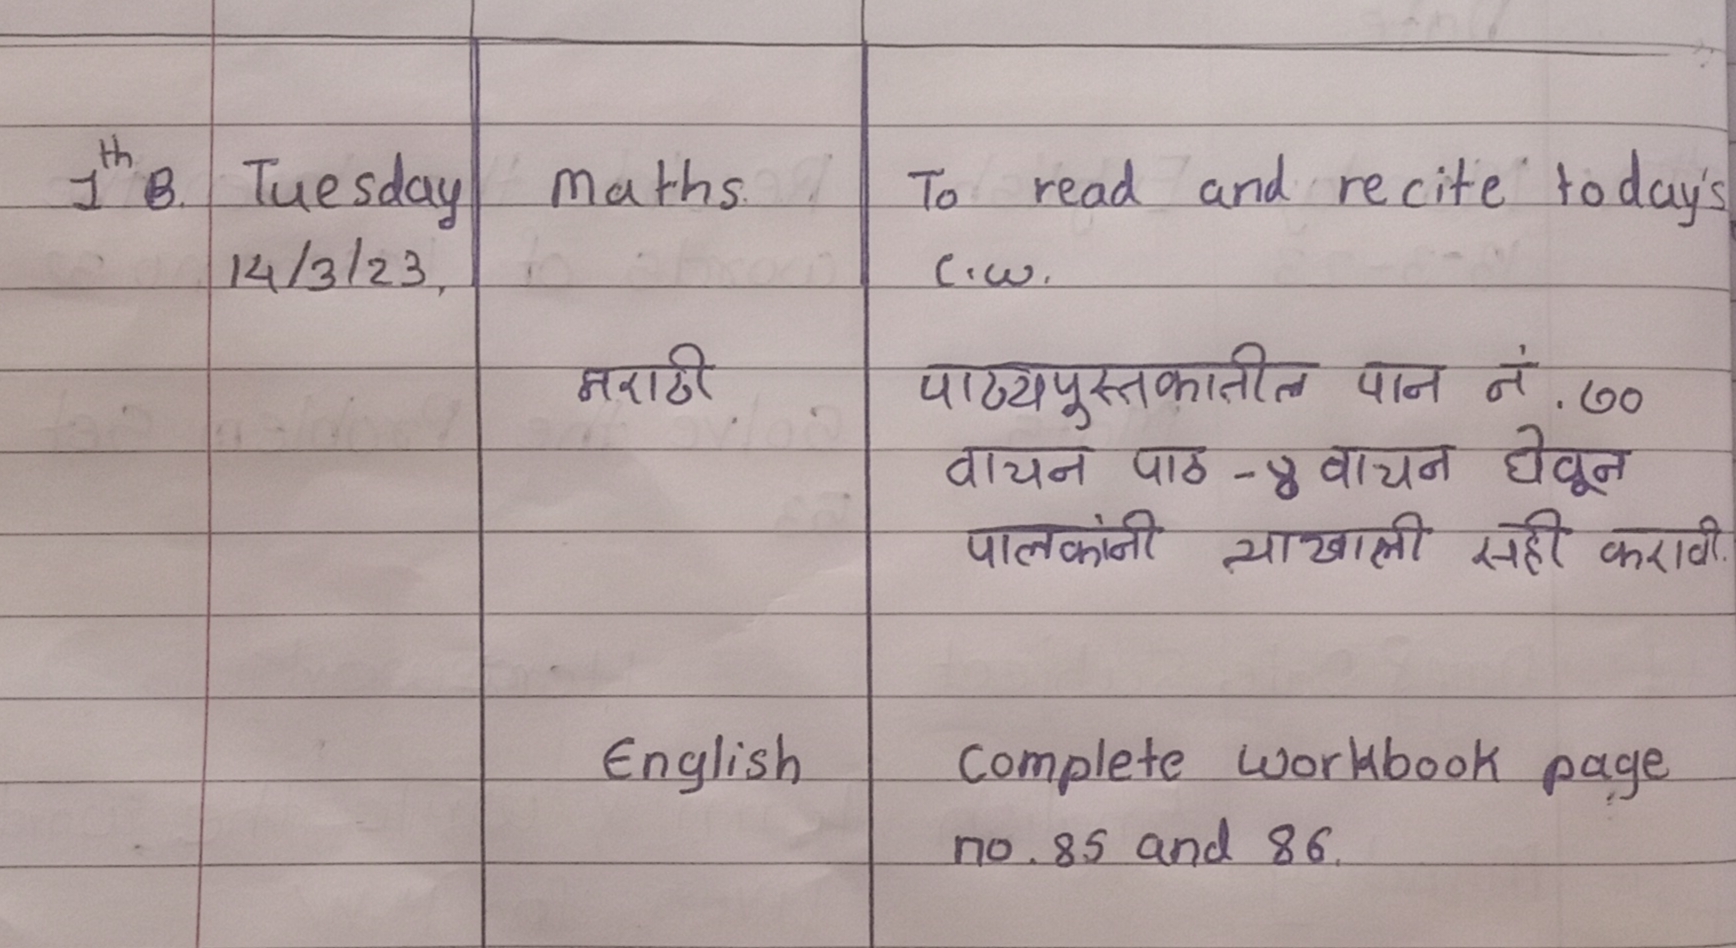 1th B. Tuesday maths. To read and recite today's
14/3/23, c.w.
मराठी पाठ्यपुस्तकातील पान नं. ७०
वाचन पाठ - ४ वाचन घेवून
पालकांनी त्याखाली सही करावी.
English complete workbook page
no. 85 and 86.